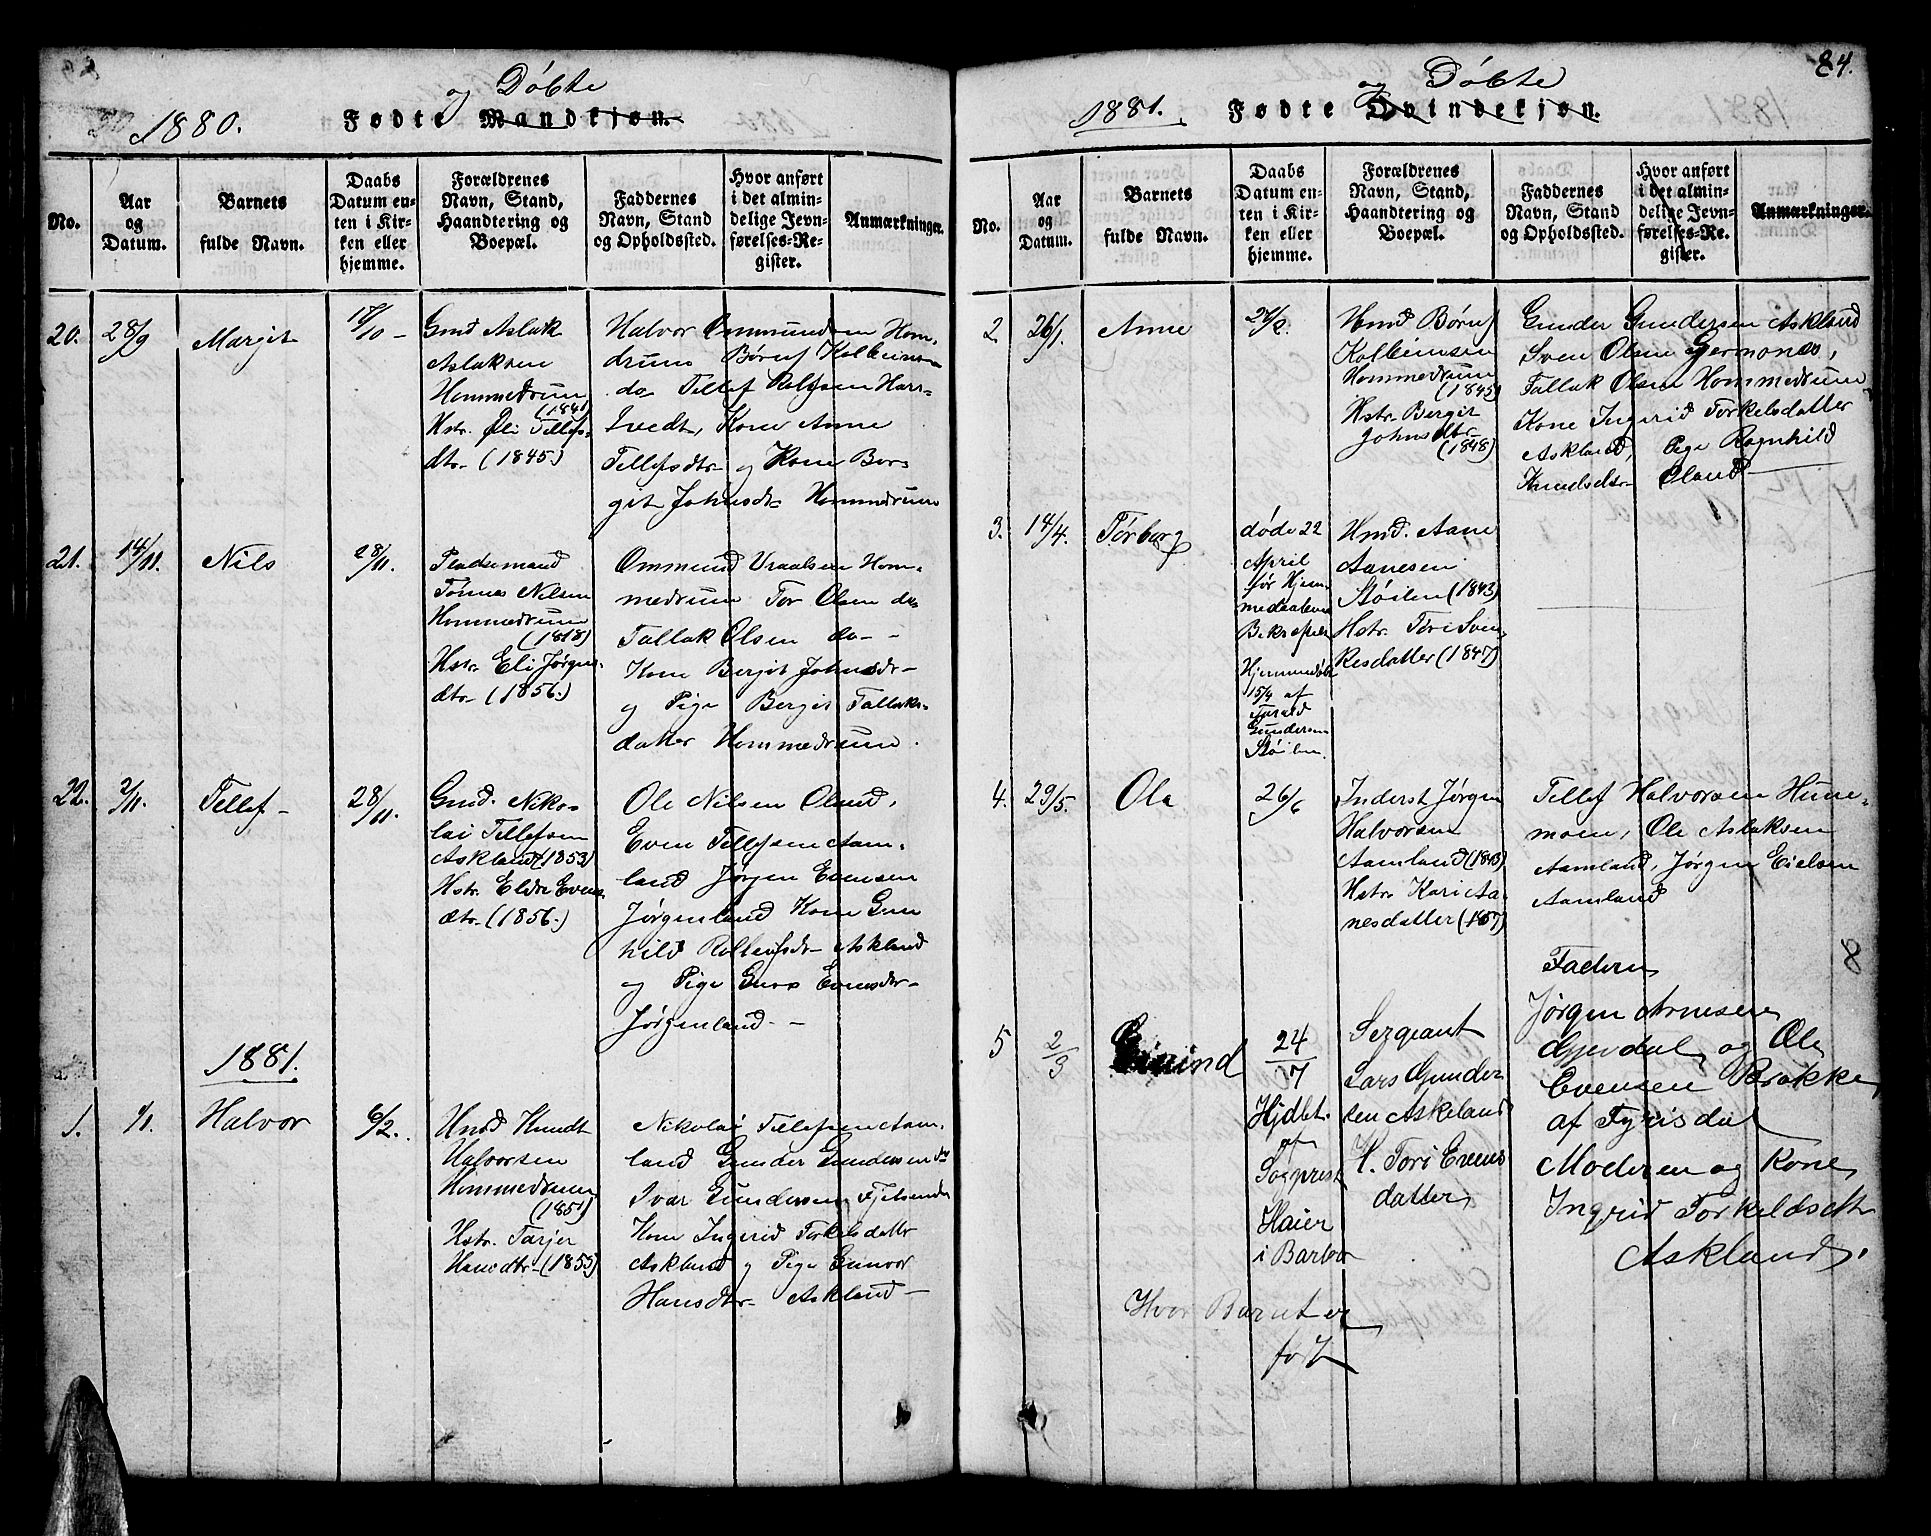 og Døbte
1880. Fødte Mandkjøn.
No.
Aar
og
Datum.
Barnets
fulde Navn.
Daabs
Datum en-
ten i Kir-
ken eller
hjemme.
Forældrenes
Navn, Stand,
Haandtering og
Boepæl.
Faddernes
Navn, Stand
og Opholdssted.
Hvor anført
i det almin-
delige Jevn-
førelses-Re-
gister.
Anmærkninger.
20. 28/9 Margit
Gmd Aslak
Aslaksen
Hommedrum
(1841)
Hstr. Eli Tellefs-
dtr. (1845.)
Halvor Ommundsen Hom-
drum Børuf Kolbeins-
do Tellef Rolfsen Hars-
tvedt, Kone Anne
Tellefsdtr og Kone Ber-
git Johnsdtr Hommedrum
21. 14/11. Nils 28/11.
Pladsemand
Tønnes Nilsen
Hommedrum
(1818)
Hstr. Eli Jørgens-
dtr. (1856.)
Ommund Vraalsen Hom-
medrum Tor Olsen do-
Tallak Olsen do-
Kone Bergit Johnsdtr-
og Pige Bergit Tallaks-
datter Hommedrum.
22. 2/11. Tellef 28/11.
Gmd. Niko-
lai Tellefsen
Askland (1853)
Hstr. Eldre Evens-
dtr. (1856.)
Ole Nilsen Oland,
Even Tellefsen Aam-
land Jørgen Evensen
Jørgenland Kone Gun
hild Rolleifsdtr Askland
og Pige Guro Evensdtr-
Jørgenland-
1881.
1. 1/1. Halvor 6/2.
Hmd Knudt
Halvorsen
Hommedrum
(1851)
Hstr. Tarjer
Hansdtr (1855)
Nikolai Tellefsen Aam-
land Gunder Gundersen
Ivar Gundersen
Kone Ingerid Torkelsdattr
Askland og Pige Gunvor
Hansdtr Askland
og Døbte
84.
1881. Fødte Qvindekjøn.
No.
Aar
og
Datum.
Barnets
fulde Navn.
Daabs
Datum en-
ten i Kir-
ken eller
hjemme.
Forældrenes
Navn, Stand,
Haandtering og
Boepæl.
Faddernes
Navn, Stand
og Opholdssted.
Hvor anført
i det almin-
delige Jevn-
førelses-Re-
gister.
Anmærkninger.
2 26/1. Anne
Hmd Børuf
Kolbeinsen
Hommedrum
(1845)
Hstr. Bergit
Johnsdtr
(1848)
Gunder Gundersen Askland
Sven Olsen
Tallak Olsen Hommedrum
Kone Ingerid Torkelsdatter
Askland, Pige Ragnhild
Knudsdtr Oland
3. 14/4. Torborg
døde 22
April
før Hjem-
medaaben
Hjemmedøbt
15/4 af
Gundersen
Støilen
Hmd. Aane
Aanesen
Støilen (1843)
Hstr. Tori Sven-
kesdatter (1847)
4. 29/5. Ole 26/6
Inderst Jørgen
Halvorsen
Aamland (1843)
Hstr. Kari Aa-
nesdatter
Tellef Halvorsen Hune-
moen, Ole Aslaksen
Aamland, Jørgen Eielsen
Aamland
5 2/3 Eivind
24/7
Hjdbt.
af
Sogprest
Haier
i Barbo
Sergeant
Lars Gunder
sen Askeland
H. Tori Evens
datter
Faderen
Jørgen Arnesen
Gjevdal og Ole
Evensen Brokke
af Fyrisdal
Moderen og Kone
Ingrid Torkeldsdtr
Askland.
8
Hvor Barnet er
født